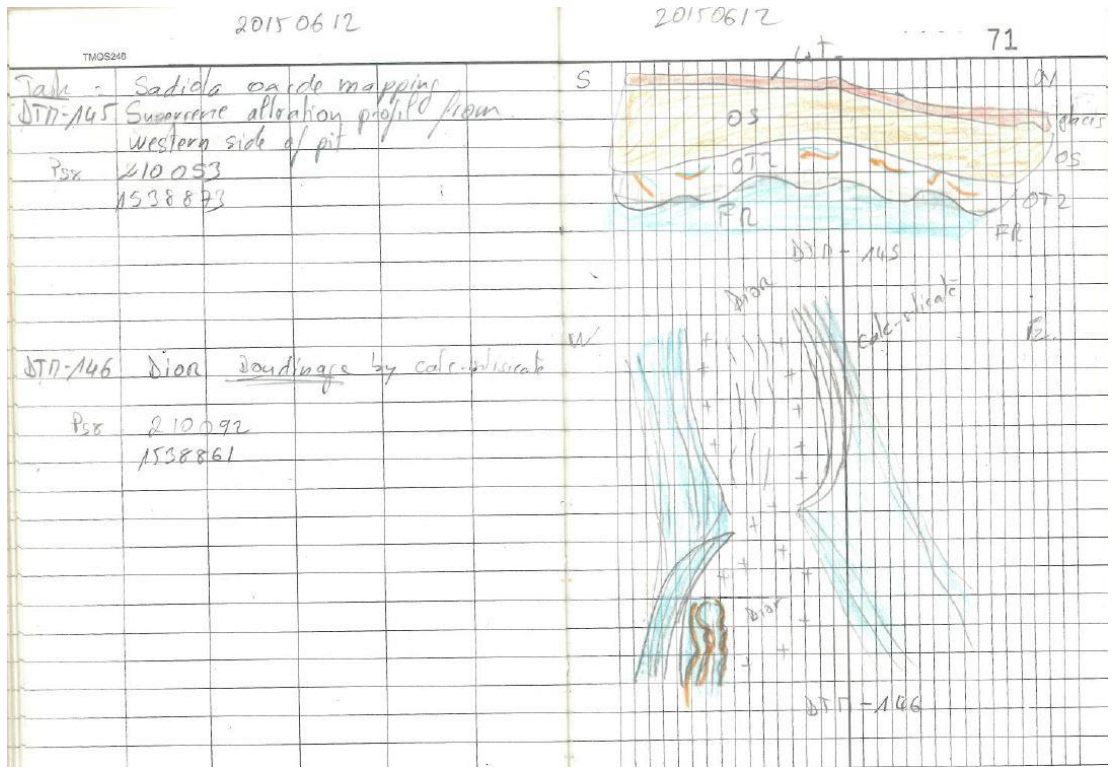 20150612
TMOS246
Task - Sadiola oxide mapping
DTM-145 Supergene alteration profil from
western side of pit
Psx 210053
1538873
DTM-146 Dior Boudinage by calc-silicate
Psx 210092
1538861
20150612
71
S
glacis
OS
OS
OT2
OT2
FR
FR
DTM-145
Dior
calc-silicate
W
E
Dior
DTM-146